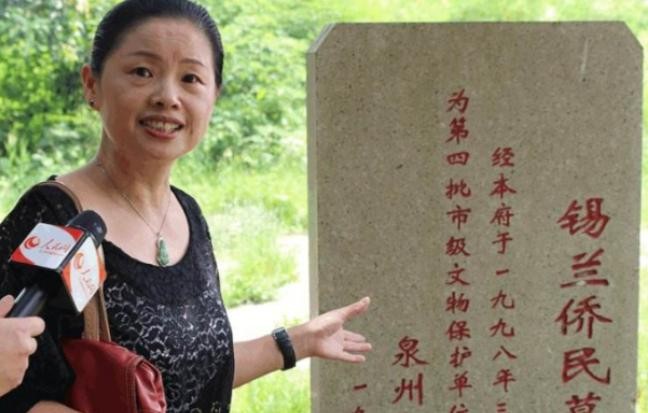 锡兰侨民
经本府于一九九八年三
为第四批市级文物保护单位
泉州
一九
人民网
人民网